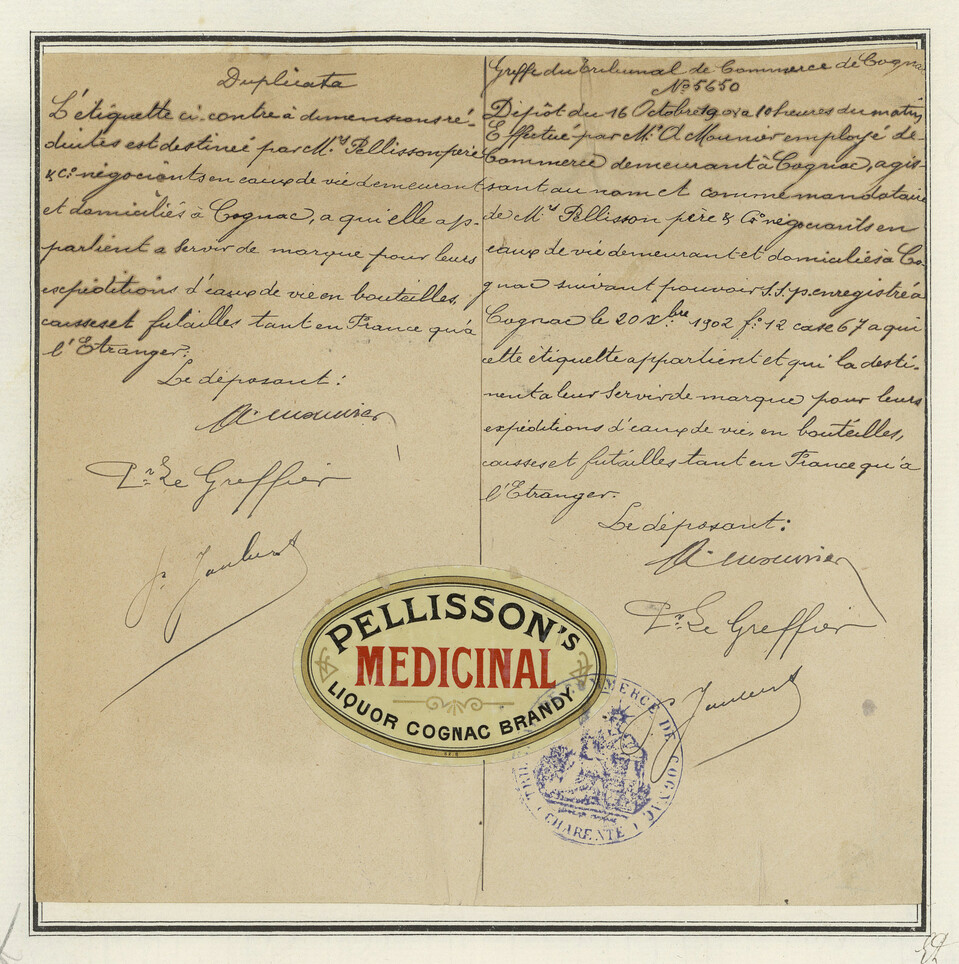 Duplicata
L'étiquette ci-contre à dimensions ré-
duites est destinée par M.rs Pellisson père
& Cº négociants en eaux de vie demeurant
et domiciliés à Cognac, a qui elle ap-
partient a servir de marque pour leurs
expéditions d'eaux de vie en bouteilles,
caisses et futailles tant en France qu'à
l'Etranger.
Le déposant:
A. Mounier
Pr. Le Greffier
J. Joubert
Greffe du Tribunal de Commerce de Cognac
Nº 5650
Dépôt du 16 Octobre à 10 heures du matin,
Effectué par Mr. A Mounier employé de
Commerce demeurant à Cognac, agis-
sant au nom et comme mandataire
de M.rs Pellisson père & Cº négociants en
eaux de vie demeurant et domiciliés à Co-
gnac suivant pouvoir S.S.p. enregistré à
Cognac le 20 Xbre 1902 fº 12 case 67 a qui
cette étiquette appartient et qui la desti-
nent a leur servir de marque pour leurs
expéditions d'eaux de vie, en bouteilles,
caisses et futailles tant en France qu'à
l'Etranger.
Le déposant:
A. Mounier
Pr. Le Greffier
J. Joubert
PELLISSON'S
MEDICINAL
LIQUOR COGNAC BRANDY
COMMERCE DE COGNAC
CHARENTE